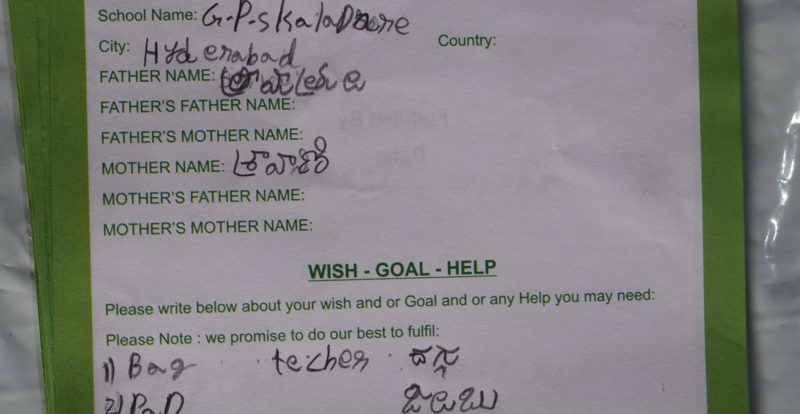 School Name: G.P.S kaladare
City: Hyderabad Country:
FATHER NAME:
FATHER'S FATHER NAME:
FATHER'S MOTHER NAME:
MOTHER NAME: శ్రావణి
MOTHER'S FATHER NAME:
MOTHER'S MOTHER NAME:
WISH - GOAL - HELP
Please write below about your wish and or Goal and or any Help you may need:
Please Note : we promise to do our best to fulfil:
1) Bag techer
2) PaD